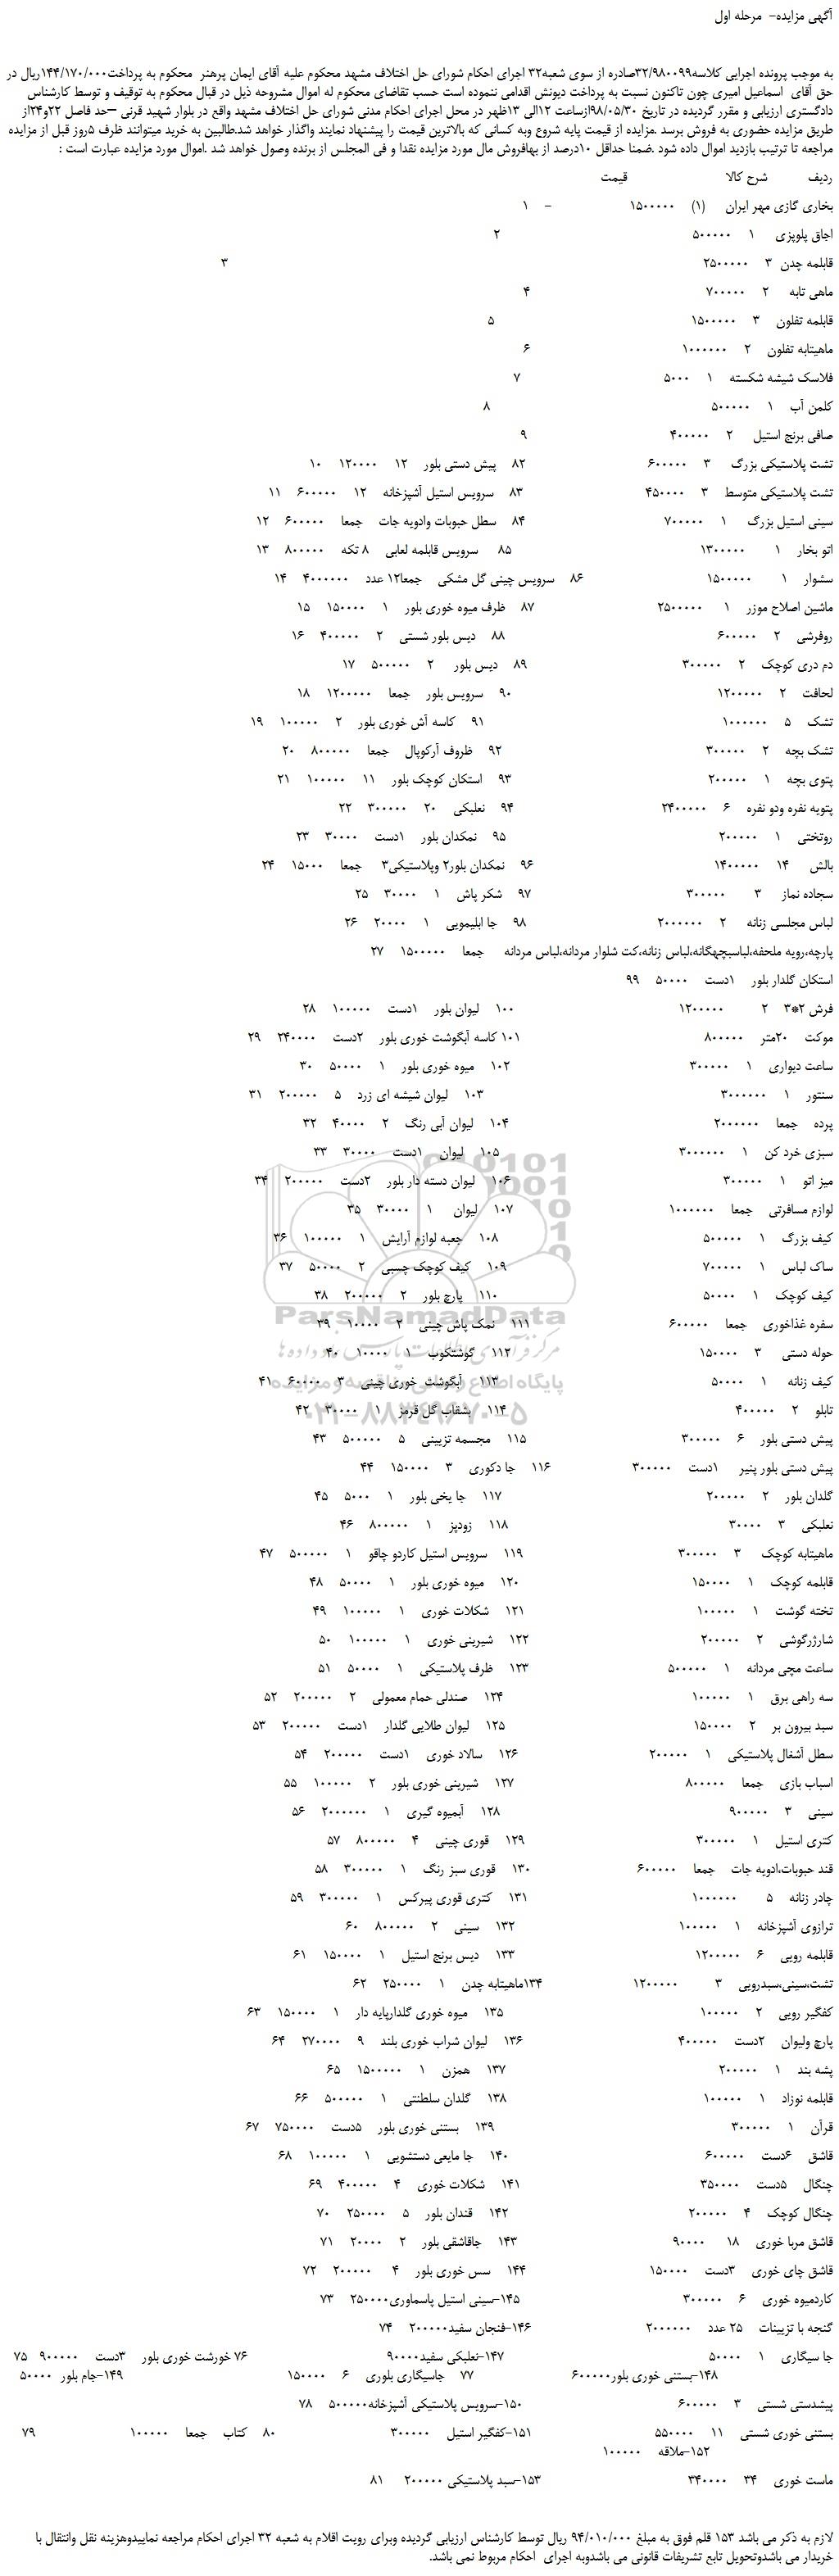 آگهی مزایده- مرحله اول
به موجب پرونده اجرایی کلاسه۳۲/۹۸۰۰۹۹صادره از سوی شعبه۳۲ اجرای احکام شورای حل اختلاف مشهد محکوم علیه آقای ایمان پرهنر محکوم به پرداخت۱۴۴/۱۷۰/۰۰۰ریال در
حق آقای اسماعیل امیری چون تاکنون نسبت به پرداخت دیونش اقدامی ننموده است حسب تقاضای محکوم له اموال مشروحه ذیل در قبال محکوم به توقیف و توسط کارشناس
دادگستری ارزیابی و مقرر گردیده در تاریخ ۹۸/۰۵/۳۰ازساعت ۱۲الی ۱۳ظهر در محل اجرای احکام مدنی شورای حل اختلاف مشهد واقع در بلوار شهید قرنی –حد فاصل ۲۲و۲۴از
طریق مزایده حضوری به فروش برسد .مزایده از قیمت پایه شروع وبه کسانی که بالاترین قیمت را پیشنهاد نمایند واگذار خواهد شد.طالبین به خرید میتوانند ظرف ۵روز قبل از مزایده
مراجعه تا ترتیب بازدید اموال داده شود .ضمنا حداقل ۱۰درصد از بهافروش مال مورد مزایده نقدا و فی المجلس از برنده وصول خواهد شد .اموال مورد مزایده عبارت است :
ردیف شرح کالا قیمت
بخاری گازی مهر ایران (۱) ۱۵۰۰۰۰۰ - ۱
اجاق پلوپزی ۱ ۵۰۰۰۰۰ ۲
قابلمه چدن ۳ ۲۵۰۰۰۰۰ ۳
ماهی تابه ۲ ۷۰۰۰۰۰ ۴
قابلمه تفلون ۳ ۱۵۰۰۰۰۰ ۵
ماهیتابه تفلون ۲ ۱۰۰۰۰۰۰ ۶
فلاسک شیشه شکسته ۱ ۵۰۰۰ ۷
کلمن آب ۱ ۵۰۰۰۰۰ ۸
صافی برنج استیل ۲ ۴۰۰۰۰۰ ۹
تشت پلاستیکی بزرگ ۳ ۶۰۰۰۰۰ ۸۲ پیش دستی بلور ۱۲ ۱۲۰۰۰۰ ۱۰
تشت پلاستیکی متوسط ۳ ۴۵۰۰۰۰ ۸۳ سرویس استیل آشپزخانه ۱۲ ۶۰۰۰۰۰ ۱۱
سینی استیل بزرگ ۱ ۷۰۰۰۰۰ ۸۴ سطل حبوبات وادویه جات جمعا ۶۰۰۰۰۰ ۱۲
اتو بخار ۱ ۱۳۰۰۰۰۰ ۸۵ سرویس قابلمه لعابی ۸ تکه ۸۰۰۰۰۰ ۱۳
سشوار ۱ ۱۵۰۰۰۰۰ ۸۶ سرویس چینی گل مشکی جمعا۱۲ عدد ۴۰۰۰۰۰۰ ۱۴
ماشین اصلاح موزر ۱ ۲۵۰۰۰۰۰ ۸۷ ظرف میوه خوری بلور ۱ ۱۵۰۰۰۰ ۱۵
روفرشی ۲ ۶۰۰۰۰۰ ۸۸ دیس بلور شستی ۲ ۴۰۰۰۰۰ ۱۶
دم دری کوچک ۲ ۳۰۰۰۰۰ ۸۹ دیس بلور ۲ ۵۰۰۰۰۰ ۱۷
لحافت ۲ ۱۲۰۰۰۰۰ ۹۰ سرویس بلور جمعا ۱۲۰۰۰۰۰ ۱۸
تشک ۵ ۱۰۰۰۰۰۰ ۹۱ کاسه آش خوری بلور ۲ ۱۰۰۰۰۰ ۱۹
تشک بچه ۲ ۳۰۰۰۰۰ ۹۲ ظروف آرکوپال جمعا ۸۰۰۰۰۰ ۲۰
پتوی بچه ۱ ۲۰۰۰۰۰ ۹۳ استکان کوچک بلور ۱۱ ۱۰۰۰۰۰ ۲۱
پتویه نفره ودو نفره ۶ ۲۴۰۰۰۰۰ ۹۴ نعلبکی ۲۰ ۳۰۰۰۰۰ ۲۲
روتختی ۱ ۲۰۰۰۰۰ ۹۵ نمکدان بلور ۱دست ۳۰۰۰۰ ۲۳
بالش ۱۴ ۱۴۰۰۰۰۰ ۹۶ نمکدان بلور۲ وپلاستیکی۳ جمعا ۱۵۰۰۰ ۲۴
سجاده نماز ۳ ۳۰۰۰۰۰ ۹۷ شکر پاش ۱ ۳۰۰۰۰ ۲۵
لباس مجلسی زنانه ۲ ۲۰۰۰۰۰۰ ۹۸ جا ابلیمویی ۱ ۲۰۰۰۰ ۲۶
پارچه،رویه ملحفه،لباسبچهگانه،لباس زنانه،کت شلوار مردانه،لباس مردانه جمعا ۱۵۰۰۰۰۰ ۲۷
استکان گلدار بلور ۱دست ۵۰۰۰۰ ۹۹
فرش ۲*۳ ۲ ۱۲۰۰۰۰۰ ۱۰۰ لیوان بلور ۱دست ۱۰۰۰۰۰ ۲۸
موکت ۲۰متر ۸۰۰۰۰۰ ۱۰۱ کاسه آبگوشت خوری بلور ۲دست ۲۴۰۰۰۰ ۲۹
ساعت دیواری ۱ ۳۰۰۰۰۰ ۱۰۲ میوه خوری بلور ۱ ۵۰۰۰۰ ۳۰
سنتور ۱ ۳۰۰۰۰۰۰ ۱۰۳ لیوان شیشه ای زرد ۵ ۲۰۰۰۰۰ ۳۱
پرده جمعا ۲۰۰۰۰۰۰ ۱۰۴ لیوان آبی رنگ ۲ ۴۰۰۰۰ ۳۲
سبزی خرد کن ۱ ۳۰۰۰۰۰۰ ۱۰۵ لیوان ۱دست ۳۰۰۰۰ ۳۳
میز اتو ۱ ۳۰۰۰۰۰ ۱۰۶ لیوان دسته دار بلور ۲دست ۲۰۰۰۰۰ ۳۴
لوازم مسافرتی جمعا ۱۰۰۰۰۰۰ ۱۰۷ لیوان ۱ ۳۰۰۰۰ ۳۵
کیف بزرگ ۱ ۵۰۰۰۰۰ ۱۰۸ جعبه لوازم آرایش ۱ ۱۰۰۰۰۰ ۳۶
ساک لباس ۱ ۷۰۰۰۰۰ ۱۰۹ کیف کوچک چسبی ۲ ۵۰۰۰۰ ۳۷
کیف کوچک ۱ ۵۰۰۰۰ ۱۱۰ پارچ بلور ۲ ۲۰۰۰۰۰ ۳۸
ParsNamadData
سفره غذاخوری جمعا ۶۰۰۰۰۰ ۱۱۱ نمک پاش چینی ۲ ۱۰۰۰۰ ۳۹
حوله دستی ۳ ۱۵۰۰۰۰ ۱۱۲ گوشتکوب ۱ ۱۰۰۰۰ ۴۰
کیف زنانه ۱ ۵۰۰۰۰ ۱۱۳ آبگوشت خوری چینی ۳ ۶۰۰۰۰ ۴۱
پایگاه اطلاع رسانی مناقصه و مزایده
تابلو ۲ ۴۰۰۰۰۰ ۱۱۴ بشقاب گل قرمز ۱ ۳۰۰۰۰ ۴۲
۰۲۱-۸۸۳۴۹۶۷۰-۵
پیش دستی بلور ۶ ۳۰۰۰۰۰ ۱۱۵ مجسمه تزیینی ۵ ۵۰۰۰۰۰ ۴۳
پیش دستی بلور پنیر ۱دست ۳۰۰۰۰۰ ۱۱۶ جا دکوری ۳ ۱۵۰۰۰۰ ۴۴
گلدان بلور ۲ ۲۰۰۰۰۰ ۱۱۷ جا یخی بلور ۱ ۵۰۰۰ ۴۵
نعلبکی ۳ ۳۰۰۰۰ ۱۱۸ زودپز ۱ ۸۰۰۰۰۰ ۴۶
ماهیتابه کوچک ۳ ۳۰۰۰۰۰ ۱۱۹ سرویس استیل کاردو چاقو ۱ ۵۰۰۰۰۰ ۴۷
قابلمه کوچک ۱ ۱۵۰۰۰۰ ۱۲۰ میوه خوری بلور ۱ ۵۰۰۰۰ ۴۸
تخته گوشت ۱ ۱۰۰۰۰۰ ۱۲۱ شکلات خوری ۱ ۱۰۰۰۰۰ ۴۹
شارژرگوشی ۲ ۲۰۰۰۰۰ ۱۲۲ شیرینی خوری ۱ ۱۰۰۰۰۰ ۵۰
ساعت مچی مردانه ۱ ۵۰۰۰۰۰ ۱۲۳ ظرف پلاستیکی ۱ ۵۰۰۰۰ ۵۱
سه راهی برق ۱ ۱۰۰۰۰۰ ۱۲۴ صندلی حمام معمولی ۲ ۲۰۰۰۰۰ ۵۲
سبد بیرون بر ۲ ۱۵۰۰۰۰ ۱۲۵ لیوان طلایی گلدار ۱دست ۲۰۰۰۰۰ ۵۳
سطل آشغال پلاستیکی ۱ ۲۰۰۰۰۰ ۱۲۶ سالاد خوری ۱دست ۲۰۰۰۰۰ ۵۴
اسباب بازی جمعا ۸۰۰۰۰۰ ۱۲۷ شیرینی خوری بلور ۲ ۱۰۰۰۰۰ ۵۵
سینی ۳ ۹۰۰۰۰۰ ۱۲۸ آبمیوه گیری ۱ ۲۰۰۰۰۰۰ ۵۶
کتری استیل ۱ ۳۰۰۰۰۰ ۱۲۹ قوری چینی ۴ ۸۰۰۰۰۰ ۵۷
قند حبوبات،ادویه جات جمعا ۶۰۰۰۰۰ ۱۳۰ قوری سبز رنگ ۱ ۳۰۰۰۰۰ ۵۸
چادر زنانه ۵ ۱۰۰۰۰۰۰ ۱۳۱ کتری قوری پیرکس ۱ ۳۰۰۰۰۰ ۵۹
ترازوی آشپزخانه ۱ ۱۰۰۰۰۰ ۱۳۲ سینی ۲ ۸۰۰۰۰۰ ۶۰
قابلمه رویی ۶ ۱۲۰۰۰۰۰ ۱۳۳ دیس برنج استیل ۱ ۱۵۰۰۰۰ ۶۱
تشت،سینی،سبدرویی ۳ ۱۲۰۰۰۰۰ ۱۳۴ماهیتابه چدن ۱ ۲۵۰۰۰۰ ۶۲
کفگیر رویی ۲ ۱۰۰۰۰۰ ۱۳۵ میوه خوری گلدارپایه دار ۱ ۱۵۰۰۰۰ ۶۳
پارچ ولیوان ۲دست ۴۰۰۰۰۰ ۱۳۶ لیوان شراب خوری بلند ۹ ۲۷۰۰۰۰ ۶۴
پشه بند ۱ ۲۰۰۰۰۰ ۱۳۷ همزن ۱ ۱۵۰۰۰۰۰ ۶۵
قابلمه نوزاد ۱ ۱۰۰۰۰۰ ۱۳۸ گلدان سلطنتی ۱ ۵۰۰۰۰۰ ۶۶
قرآن ۱ ۳۰۰۰۰۰ ۱۳۹ بستنی خوری بلور ۵دست ۷۵۰۰۰۰ ۶۷
قاشق ۶دست ۶۰۰۰۰۰ ۱۴۰ جا مایعی دستشویی ۱ ۱۰۰۰۰۰ ۶۸
چنگال ۵دست ۳۵۰۰۰۰ ۱۴۱ شکلات خوری ۴ ۴۰۰۰۰۰ ۶۹
چنگال کوچک ۴ ۲۰۰۰۰۰ ۱۴۲ قندان بلور ۵ ۲۵۰۰۰۰ ۷۰
قاشق مربا خوری ۱۸ ۹۰۰۰۰ ۱۴۳ جاقاشقی بلور ۲ ۲۰۰۰۰ ۷۱
قاشق چای خوری ۳دست ۱۵۰۰۰۰ ۱۴۴ سس خوری بلور ۴ ۲۰۰۰۰۰ ۷۲
کاردمیوه خوری ۶ ۳۰۰۰۰۰ ۱۴۵-سینی استیل پاسماوری۲۵۰۰۰۰ ۷۳
گنجه با تزیینات ۲۵ عدد ۲۰۰۰۰۰۰ ۱۴۶-فنجان سفید۲۰۰۰۰۰ ۷۴
جا سیگاری ۱ ۵۰۰۰۰ ۱۴۷-نعلبکی سفید۹۰۰۰۰ ۷۶ خورشت خوری بلور ۳دست ۹۰۰۰۰۰ ۷۵
۱۴۸-بستنی خوری بلور۶۰۰۰۰۰ ۷۷ جاسیگاری بلوری ۶ ۱۵۰۰۰۰ ۱۴۹-جام بلور ۵۰۰۰۰
پیشدستی شستی ۳ ۶۰۰۰۰۰ ۱۵۰-سرویس پلاستیکی آشپزخانه۵۰۰۰۰۰ ۷۸
بستنی خوری شستی ۱۱ ۵۵۰۰۰۰ ۱۵۱-کفگیر استیل ۳۰۰۰۰۰ ۸۰ کتاب جمعا ۱۰۰۰۰۰ ۷۹
۱۵۲-ملاقه ۱۰۰۰۰۰
ماست خوری ۳۴ ۳۴۰۰۰۰ ۱۵۳-سبد پلاستیکی ۲۰۰۰۰۰ ۸۱
لازم به ذکر می باشد ۱۵۳ قلم فوق به مبلغ ۹۴/۰۱۰/۰۰۰ ریال توسط کارشناس ارزیابی گردیده وبرای رویت اقلام به شعبه ۳۲ اجرای احکام مراجعه نماییدوهزینه نقل وانتقال با
خریدار می باشدوتحویل تابع تشریفات قانونی می باشدوبه اجرای احکام مربوط نمی باشد.